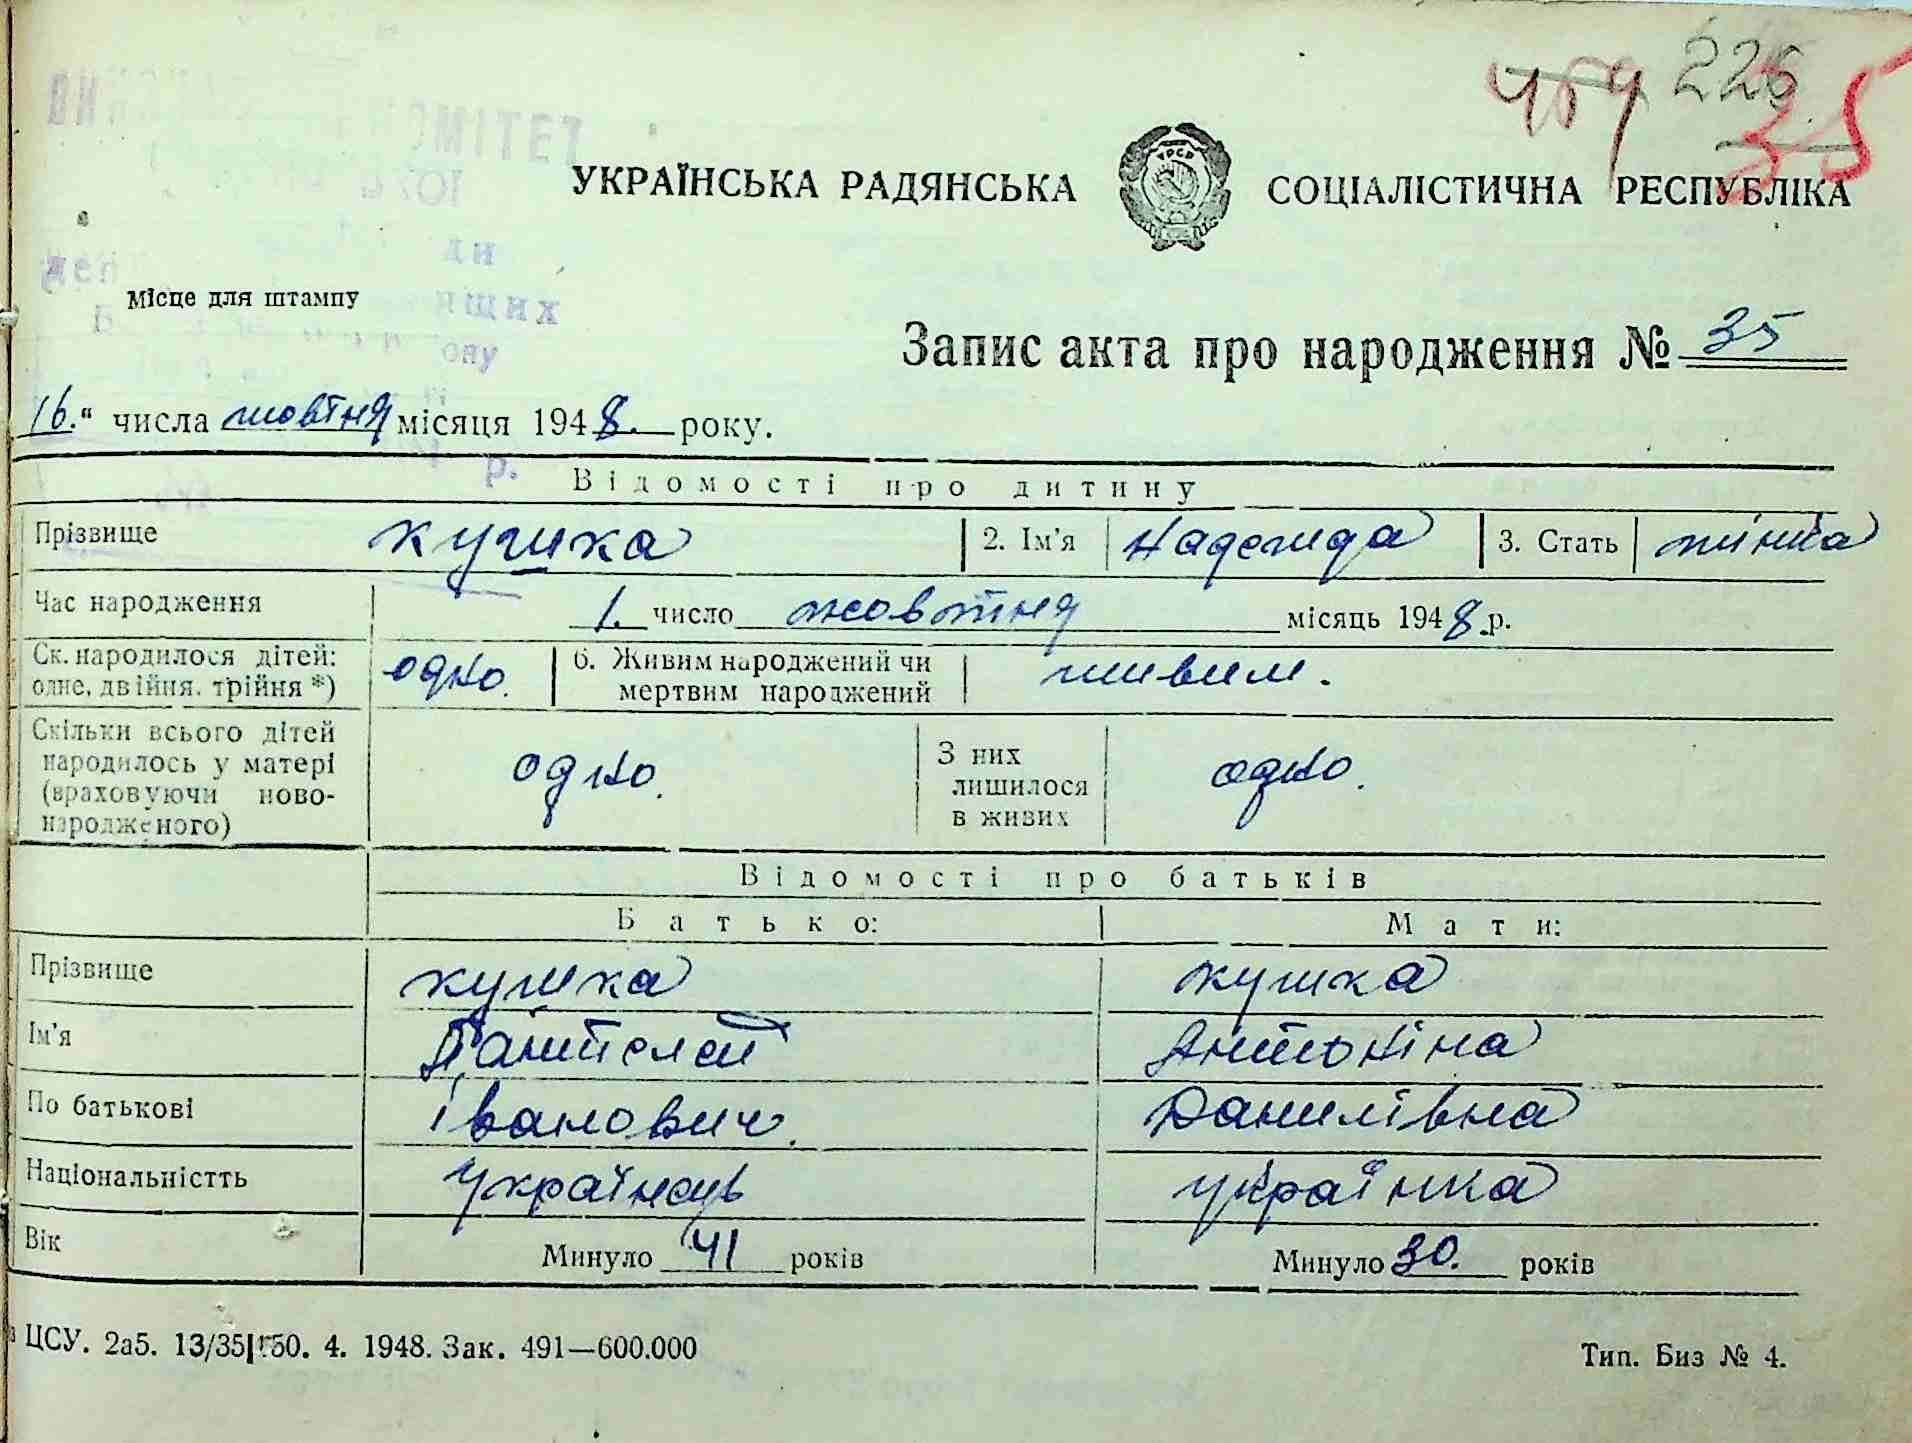 459 226
35
ОМІТЕТ
УКРАЇНСЬКА РАДЯНСЬКА СОЦІАЛІСТИЧНА РЕСПУБЛІКА
ди
Місце для штампу
ящих
ону
Запис акта про народження № 35
16." числа жовтня місяця 1948. року.
р.
Відомості про дитину
Прізвище Кушка 2. Ім'я Надежида 3. Стать жінка
Час народження 1. число жовтня місяць 1948 р.
Ск. народилося дітей: одне, двійня, трійня *) одно. 6. Живим народжений чи мертвим народжений живим.
Скільки всього дітей народилось у матері (враховуючи ново-народженого) одно. З них лишилося в живих одно.
Відомості про батьків
Батько: Мати:
Прізвище Кушка Кушка
Ім'я Пантелей Антоніна
По батькові Іванович. Данилівна
Національністть Українець українка
Вік Минуло 41 років Минуло 30. років
ЦСУ. 2а5. 13/35 150. 4. 1948. Зак. 491—600.000 Тип. Биз № 4.